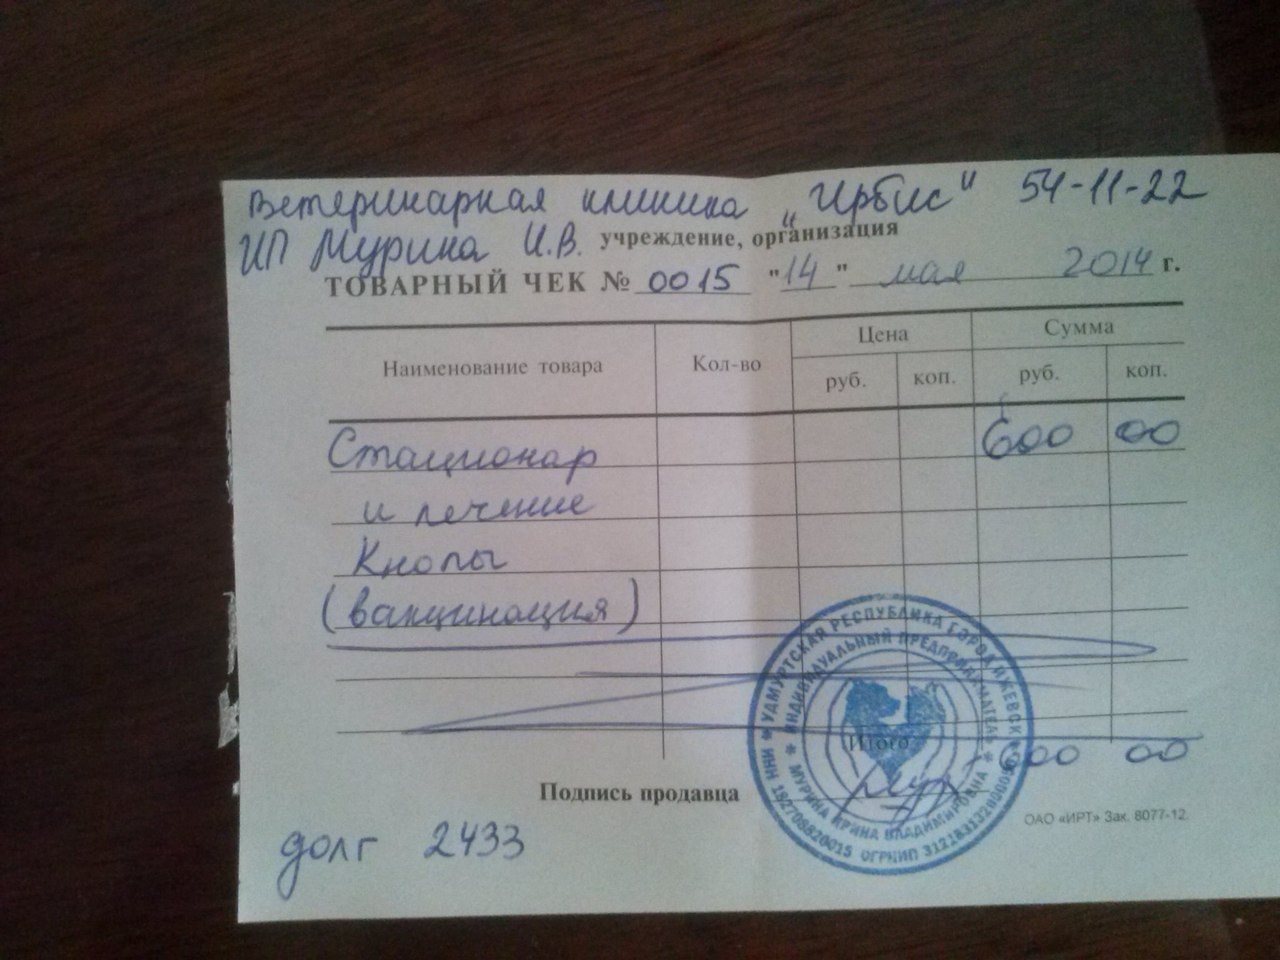 Ветеринарная клиника „Ирбис" 54-11-22
ИП Мурина И.В. учреждение, организация
ТОВАРНЫЙ ЧЕК № 0015 "14" мая 2014 г.
Наименование товара Кол-во Цена Сумма
руб. коп. руб. коп.
Стационар 600 00
и лечение
Кнопы
(вакцинация)
Итого 600 00
Подпись продавца
ОАО «ИРТ» Зак. 8077-12.
долг 2433
УДМУРТСКАЯ РЕСПУБЛИКА ГОРОД ИЖЕВСК
ИНДИВИДУАЛЬНЫЙ ПРЕДПРИНИМАТЕЛЬ
МУРИНА ИРИНА ВЛАДИМИРОВНА
ИНН 182708820015 ОГРНИП